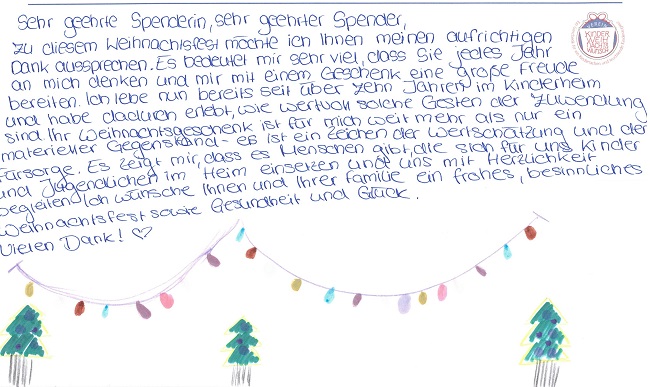 Sehr geehrte Spenderin, sehr geehrter Spender,
zu diesem Weihnachtsfest möchte ich Ihnen meinen aufrichtigen
Dank aussprechen. Es bedeutet mir sehr viel, dass Sie jedes Jahr
an mich denken und mir mit einem Geschenk eine große Freude
bereiten. Ich lebe nun bereits seit über zehn Jahren im Kinderheim
und habe dadurch erlebt, wie wertvoll solche Gesten der Zuwendung
sind. Ihr Weihnachtsgeschenk ist für mich weit mehr als nur ein
materieller Gegenstand - es ist ein Zeichen der Wertschätzung und der
Fürsorge. Es zeigt mir, dass es Menschen gibt, die sich für uns Kinder
und Jugendlichen im Heim einsetzen und uns mit Herzlichkeit
begleiten. Ich wünsche Ihnen und Ihrer Familie ein frohes, besinnliches
Weihnachtsfest sowie Gesundheit und Glück.
Vielen Dank! ♡
VEREIN
KINDER